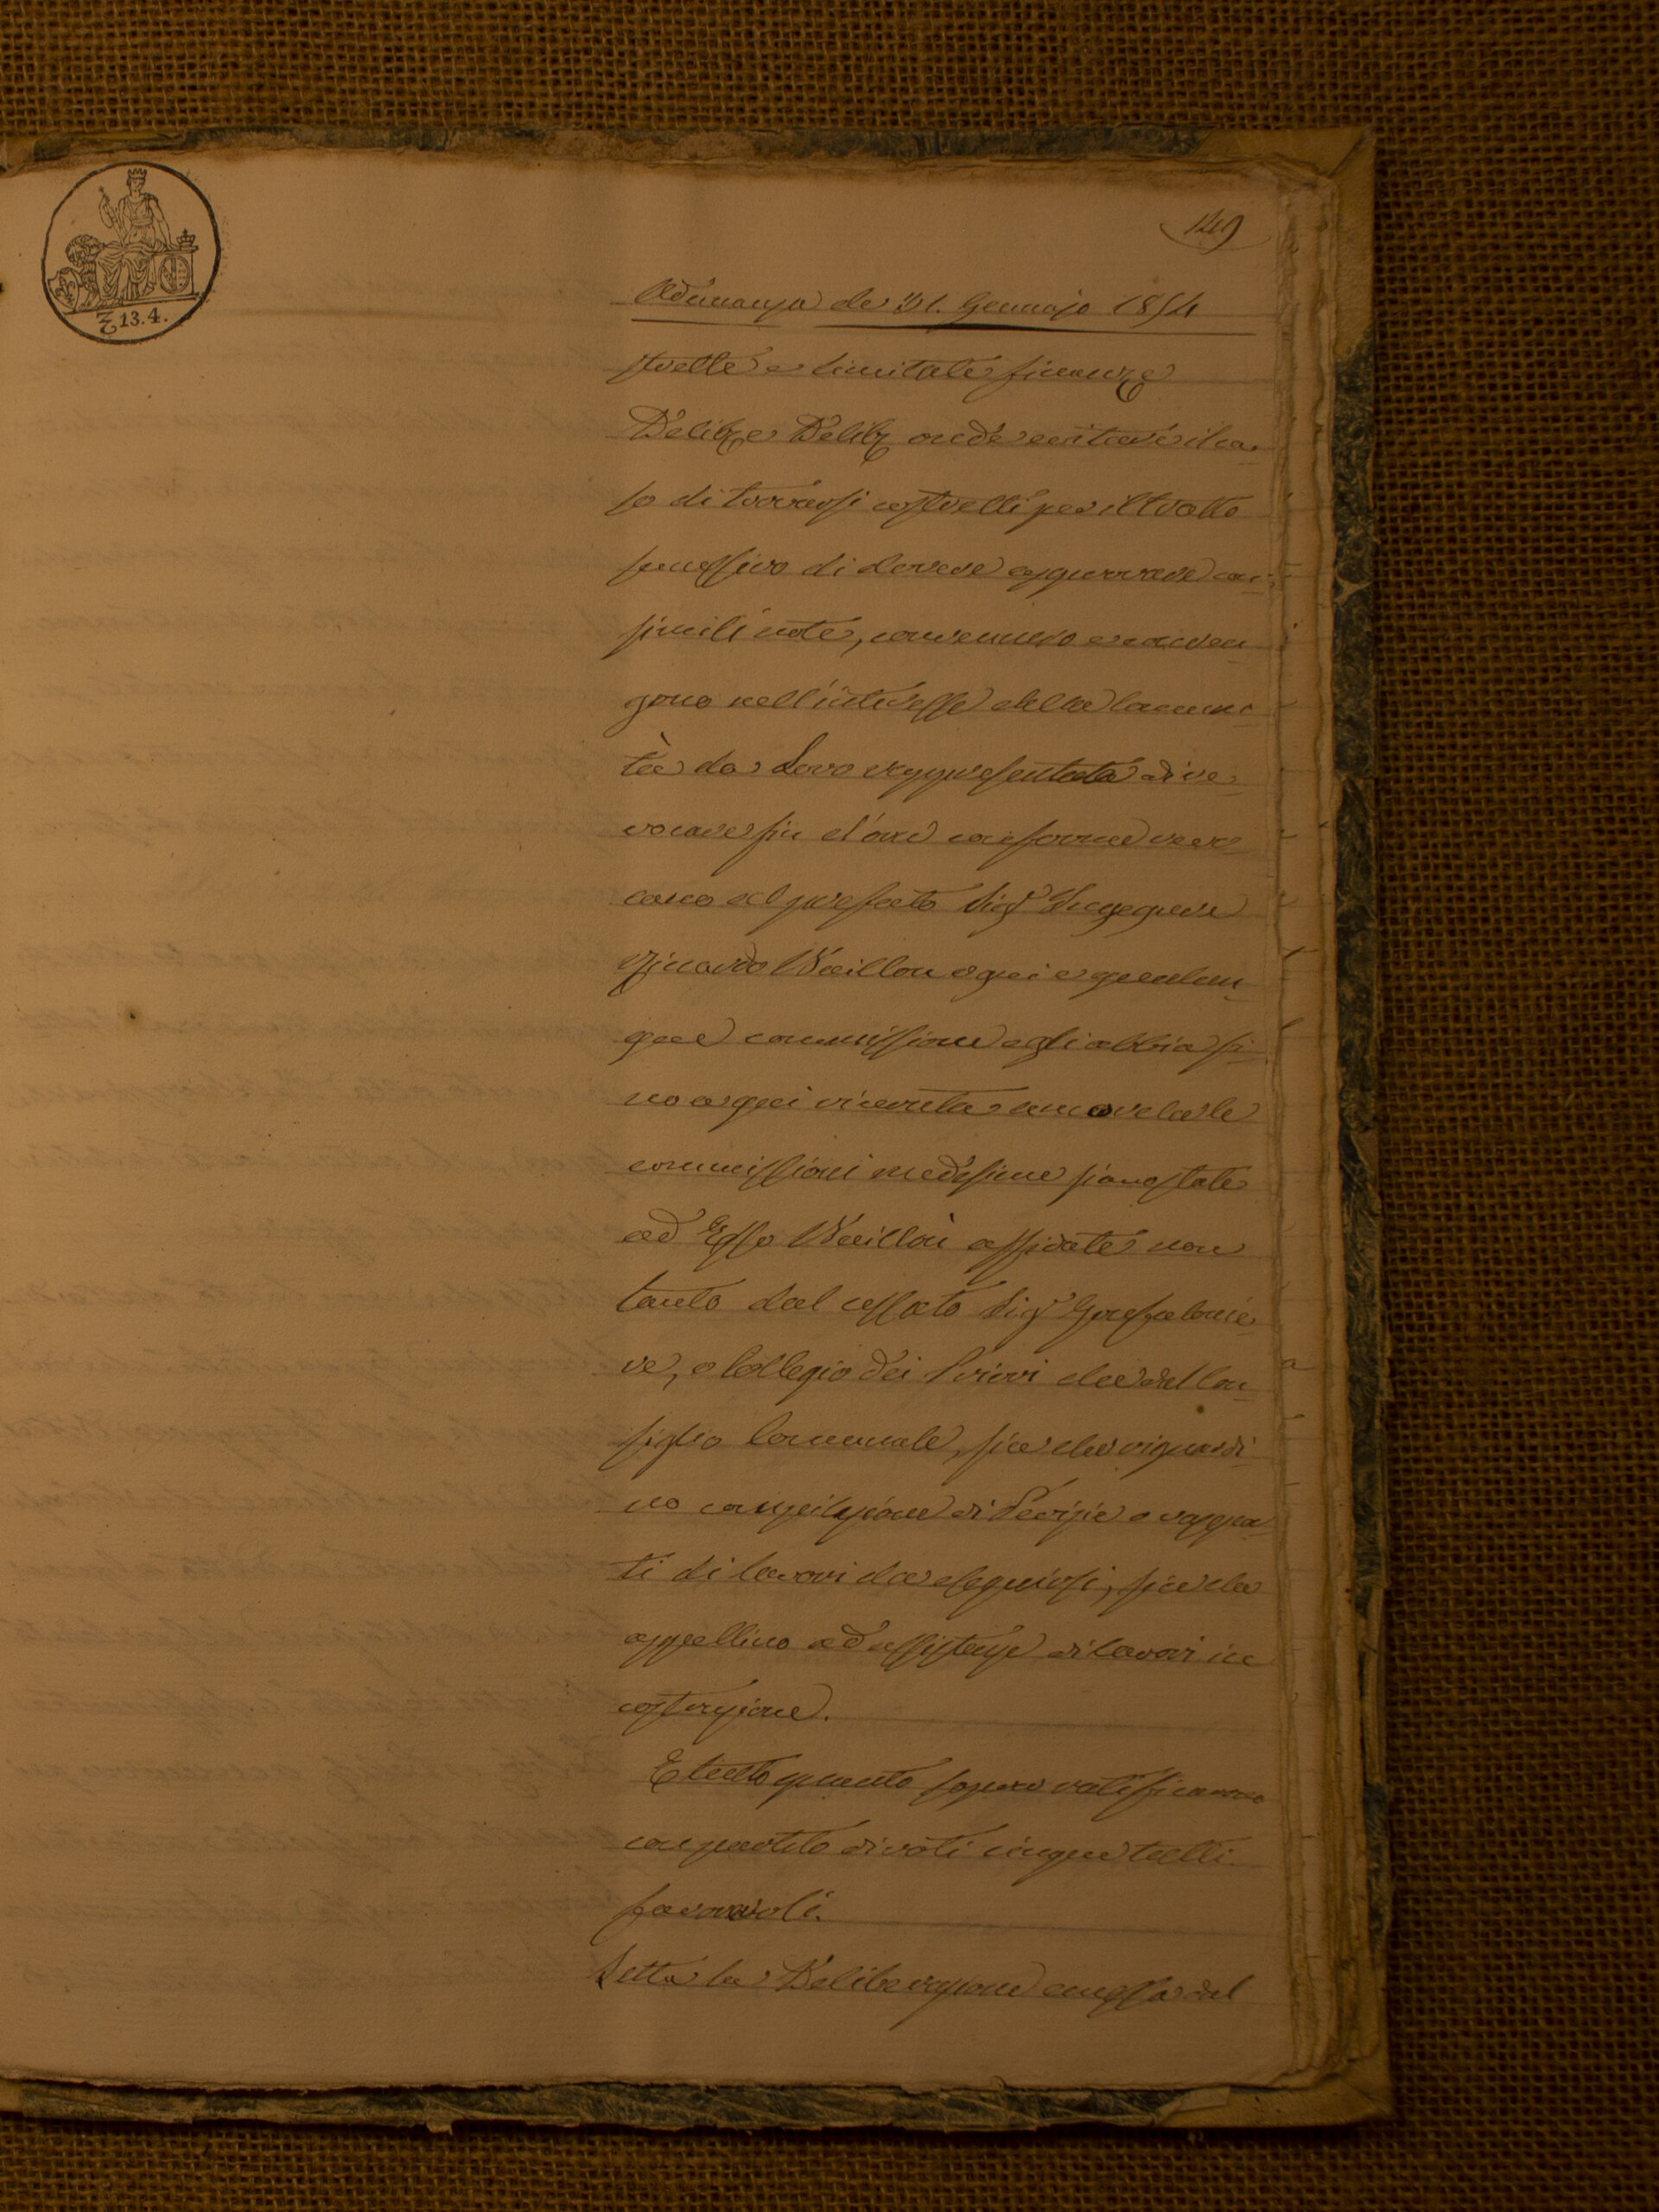 13.4.
149
Adunanza de 31. Gennajo 1854
strette e limitate finanze
Delibe e Delibe onde evitare il ca-
so di trovarsi costretti per il tratto
successivo di dovere appurare con-
simili note, convennero e conven
gono nell'interesse della Comuni
tà da Loro rappresentata di re-
vocare fin d'ora conforme revo
cano al prefato Sigr Ingegnere
Vuillon ogni e qualun
que commissione egli abbia fi
no a qui ricevuta ancorche le
commissioni medesime siano state
ad Esso Vuillon affidate non
tanto dal cessato Sigr Gonfalonie-
re, o Collegio dei Priori che dal Con
siglio Comunale, sia che riguardi
no compilazione di Perizie o rappor
ti di lavori da eseguirsi, sia che
appellino ad assistenze di lavori in
costruzione.
E tutto quanto sopra ratificarono
con partito di voti cinque tutti
favorevoli.
Letta la Deliberazione emessa dal